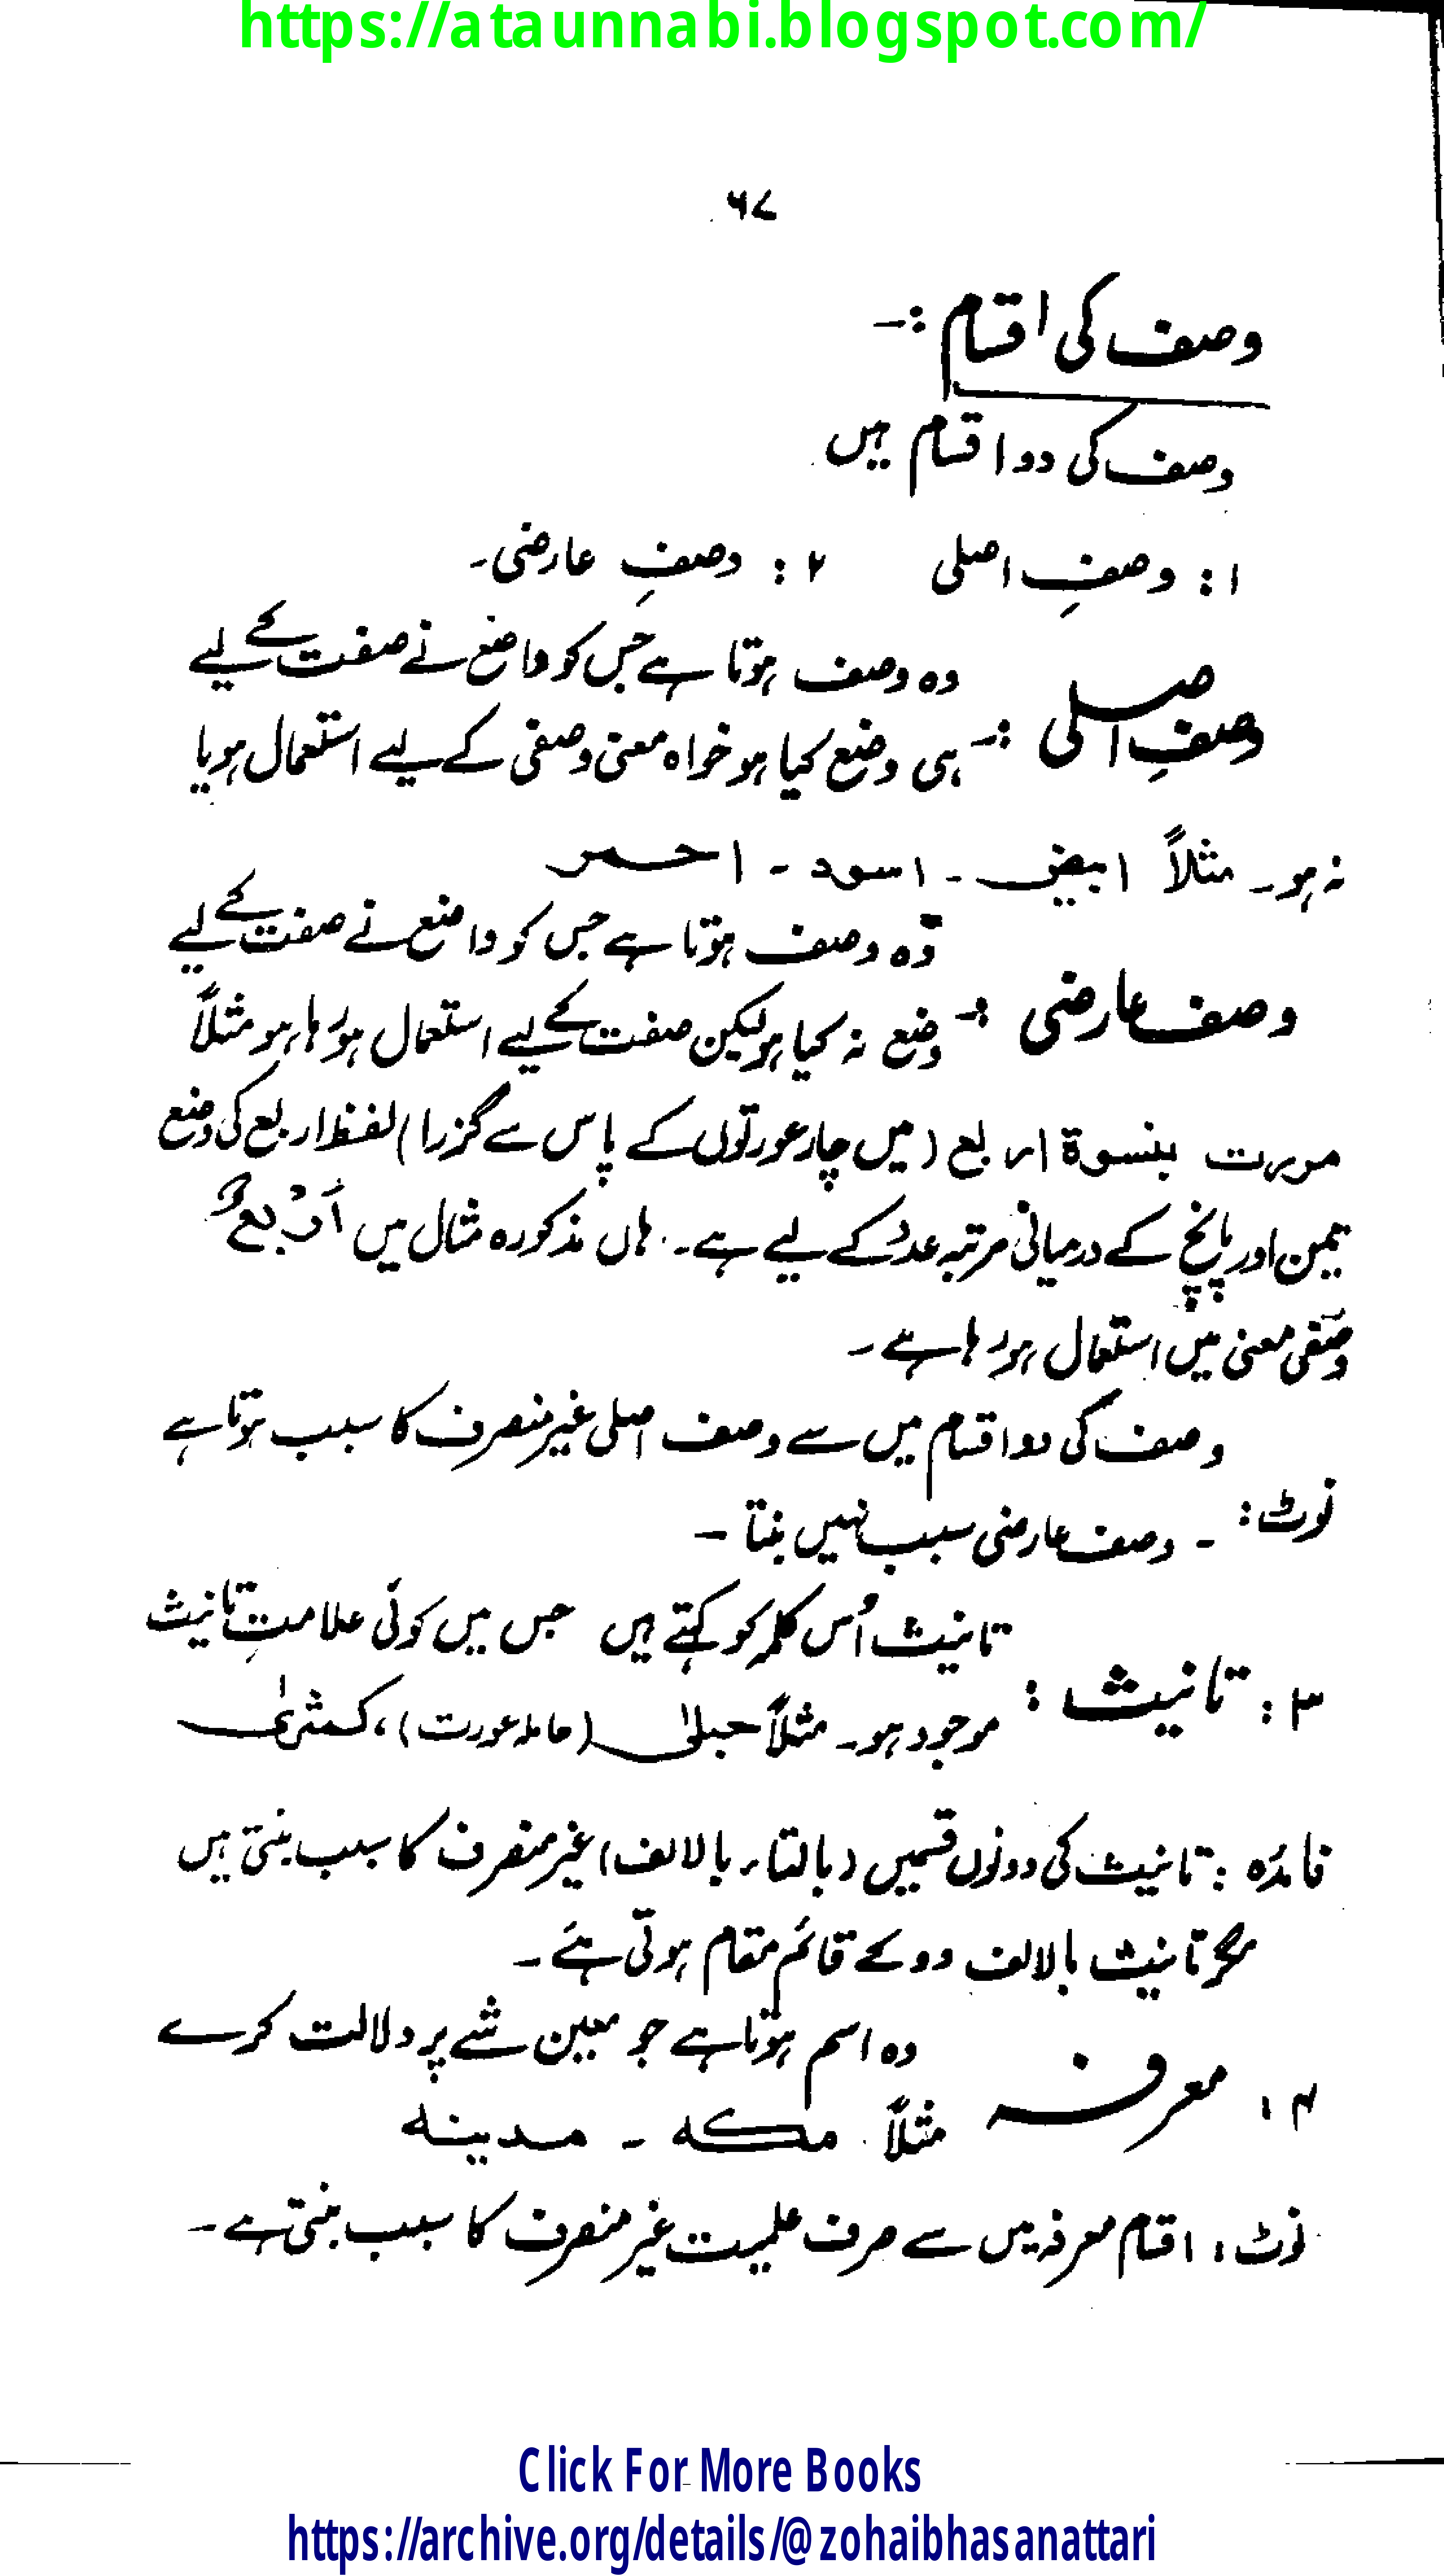 https://ataunnabi.blogspot.com/
۶۷
وصف کی اقسام :-
وصف کی دو اقسام ہیں
۱ : وصفِ اصلی ۲ : وصفِ عارضی۔
وصفِ اصلی :- وہ وصف ہوتا ہے جس کو واضع نے صفت کے لیے
ہی وضع کیا ہو خواہ معنی وصفی کے لیے استعمال ہو یا
نہ ہو۔ مثلاً ابیض ۔ اسود ۔ احمر
وصف عارضی :- وہ وصف ہوتا ہے جس کو واضع نے صفت کے لیے
وضع نہ کیا ہو لیکن صفت کے لیے استعمال ہو رہا ہو مثلاً
مررت بنسوۃ اربع (میں چار عورتوں کے پاس سے گزرا) لفظ اربع کی وضع
تین اور پانچ کے درمیانی مرتبہ عدد کے لیے ہے۔ ہاں مذکورہ مثال میں اَرْبَعٌ
وصفی معنی میں استعمال ہو رہا ہے ۔
وصف کی دو اقسام میں سے وصف اصلی غیر منصرف کا سبب ہوتا ہے
نوٹ : ۔ وصف عارضی سبب نہیں بنتا ۔
۳ : تانیث : تانیث اُس کلمہ کو کہتے ہیں جس میں کوئی علامتِ تانیث
موجود ہو۔ مثلاً حبلیٰ (حاملہ عورت)، کمثریٰ
فائدہ : تانیث کی دونوں قسمیں (بالتاء، بالالف) غیر منصرف کا سبب بنتی ہیں
مگر تانیث بالالف دو کے قائم مقام ہوتی ہے ۔
۴ : معرفہ وہ اسم ہوتا ہے جو معین شے پر دلالت کرے
مثلاً مکہ ۔ مدینہ
نوٹ : اقسام معرفہ میں سے صرف علمیت غیر منصرف کا سبب بنتی ہے ۔
Click For More Books
https://archive.org/details/@zohaibhasanattari